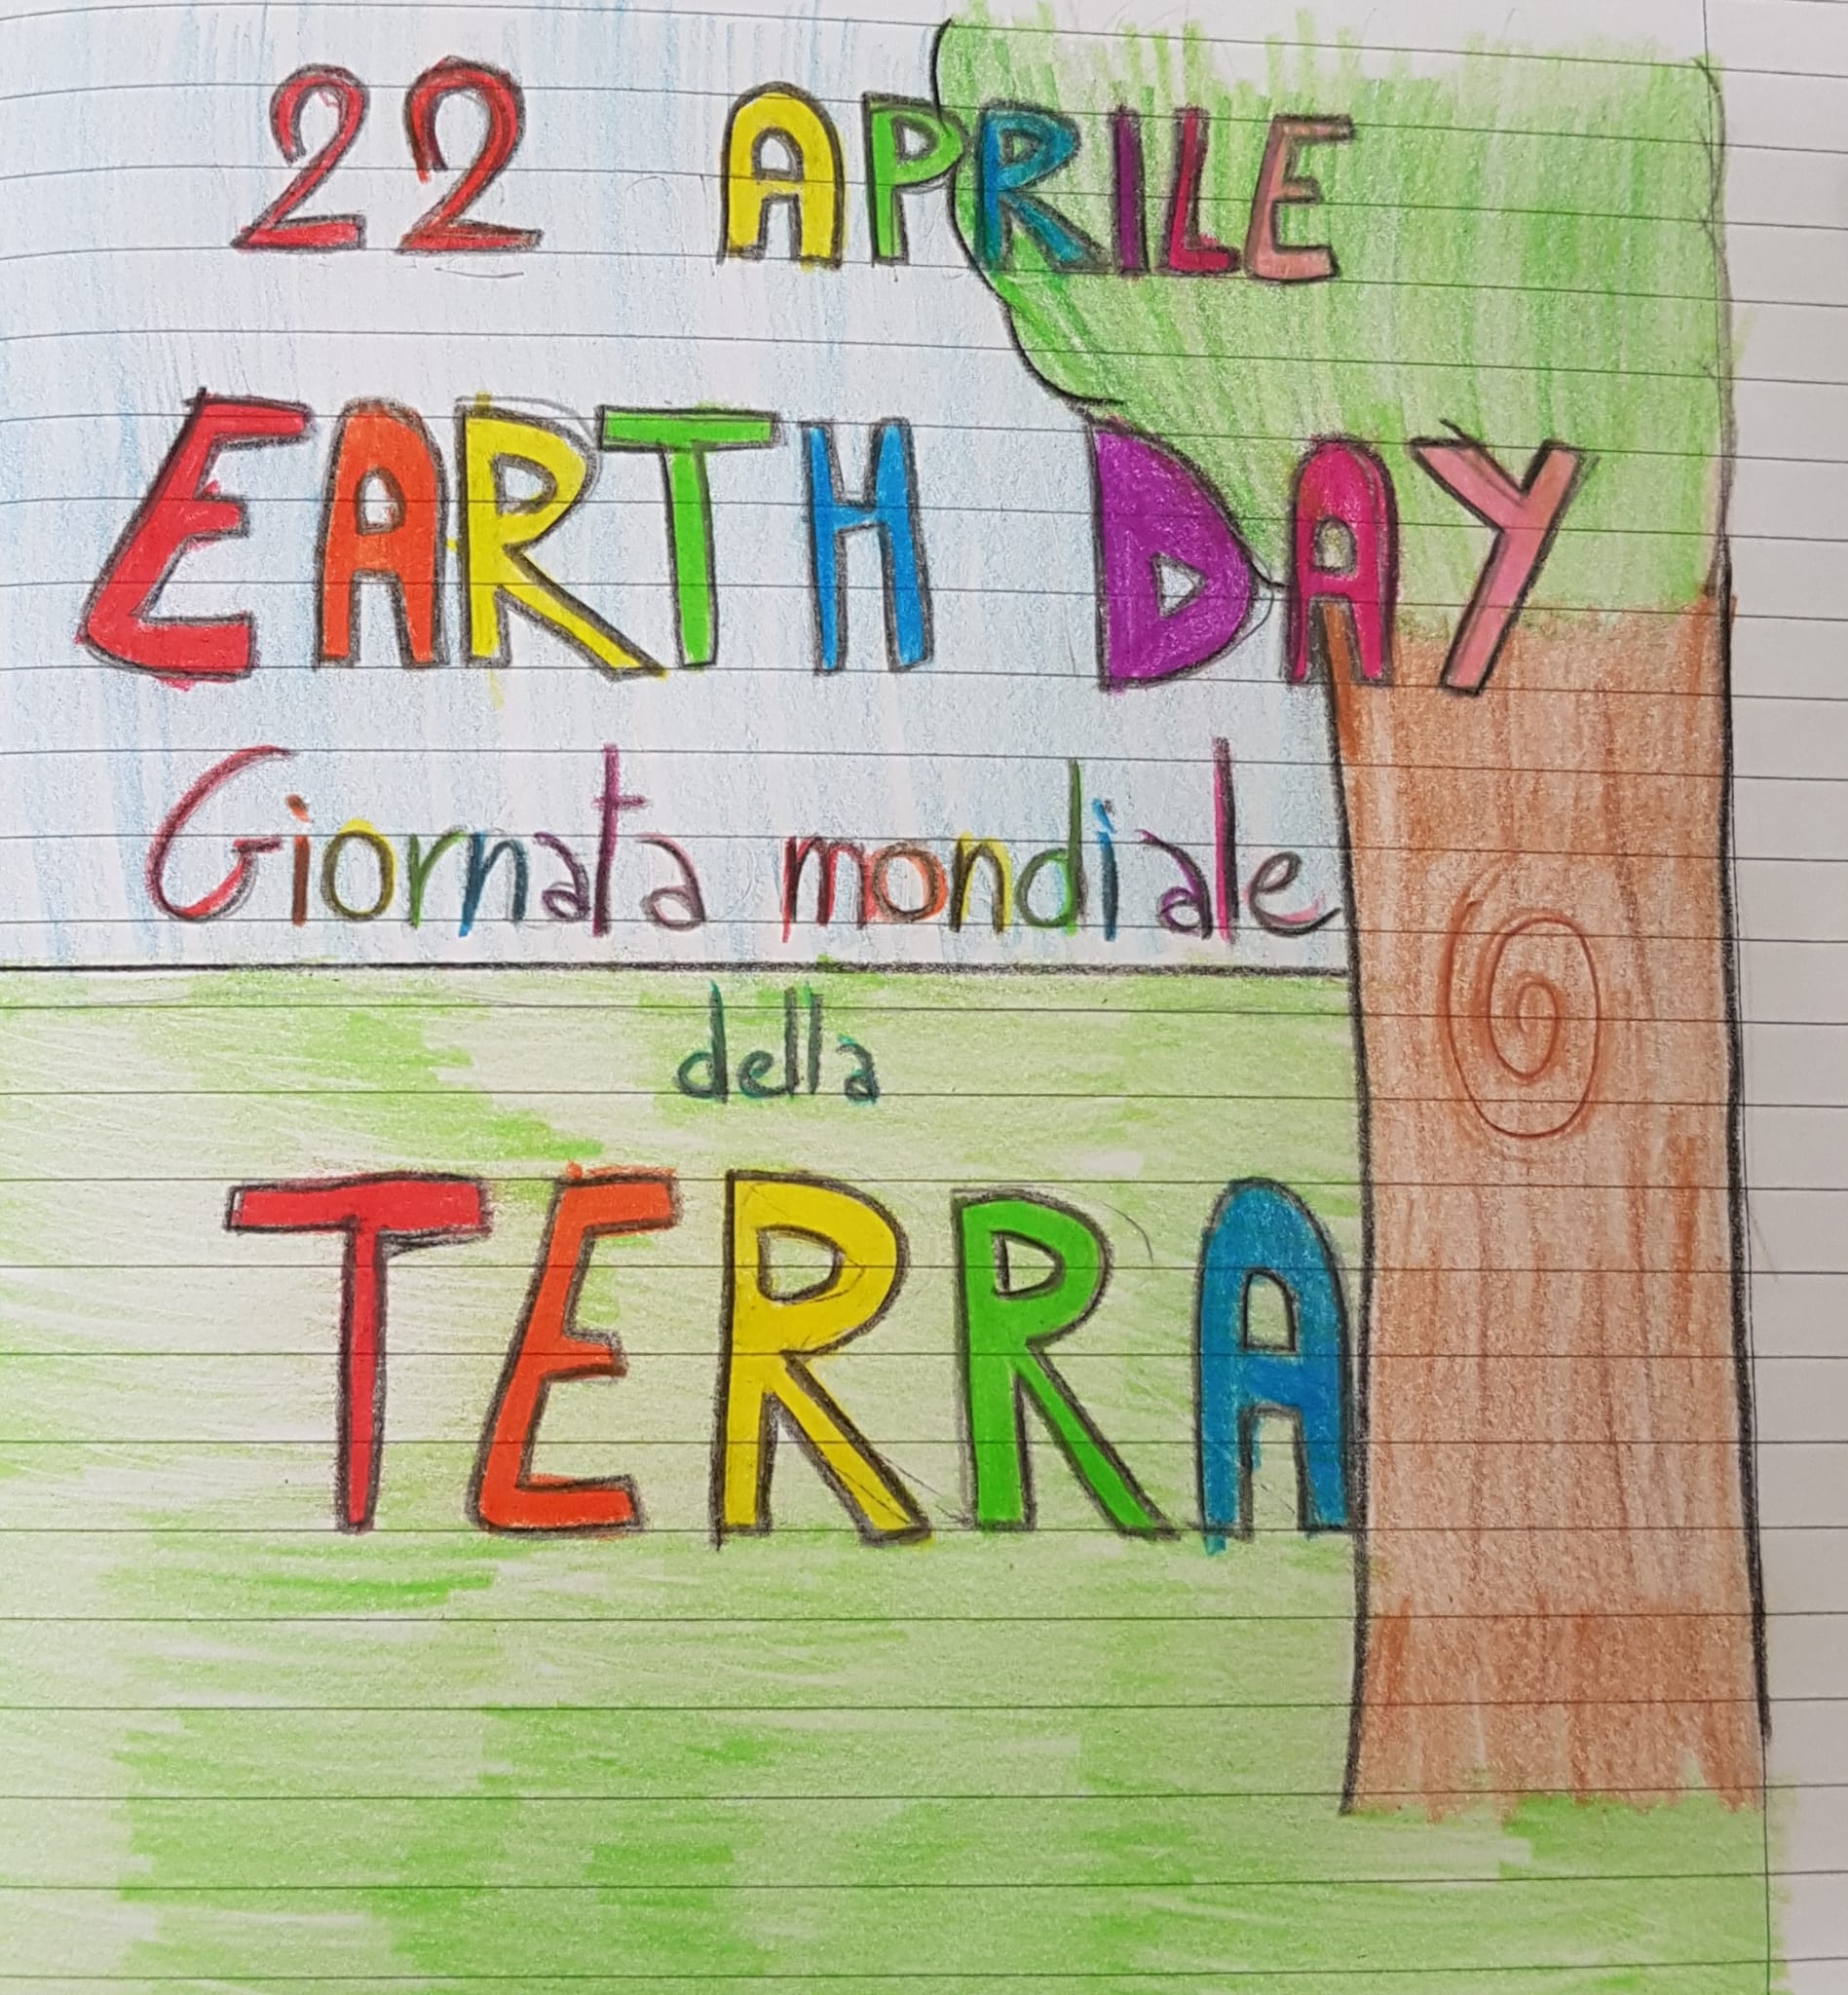 22 APRILE
EARTH DAY
Giornata mondiale
della
TERRA